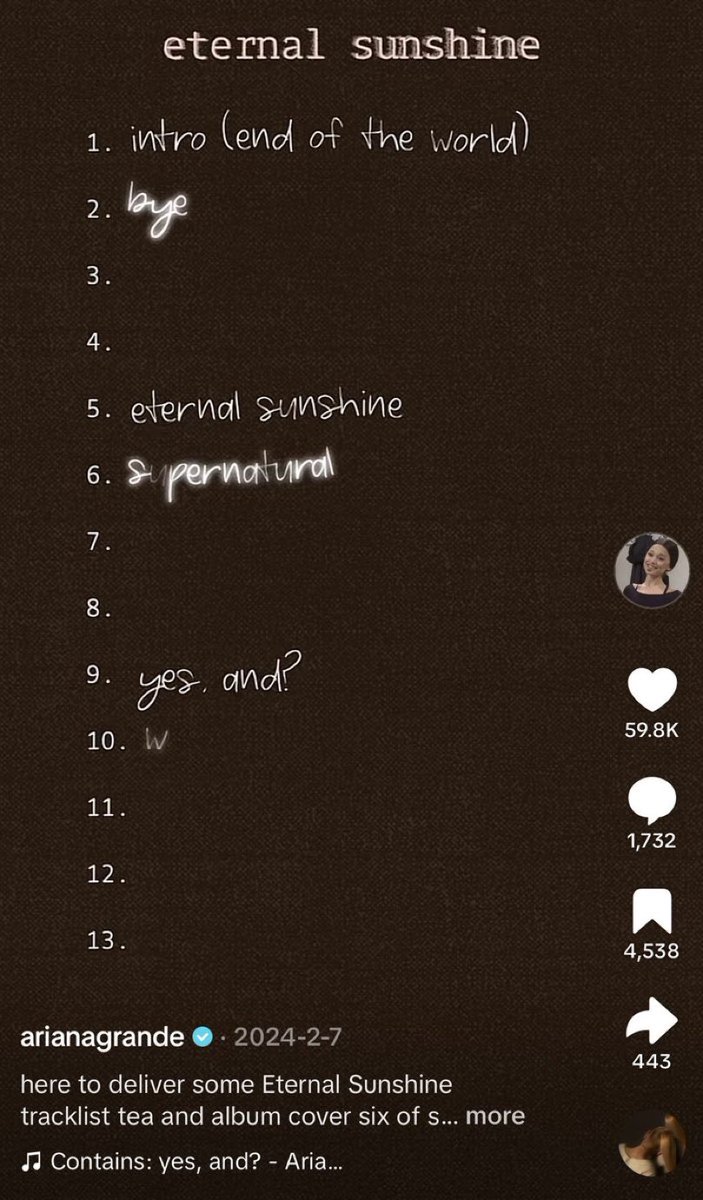 eternal sunshine
1. intro (end of the world)
2. bye
3.
4.
5. eternal sunshine
6. supernatural
7.
8.
9. yes, and?
10. w
11.
12.
13.
59.8K
1,732
4,538
443
arianagrande · 2024-2-7
here to deliver some Eternal Sunshine
tracklist tea and album cover six of s... more
Contains: yes, and? - Aria...